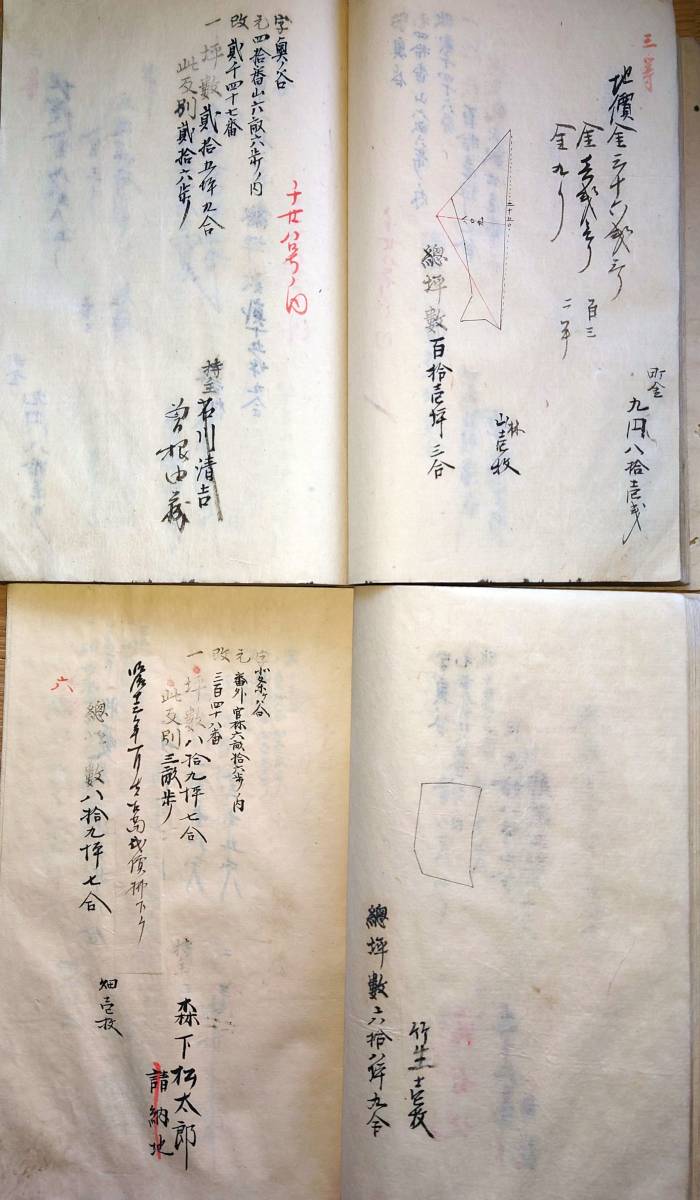 三等
地價金三十六戔
金
金九り
百三
二年
町金
九円八拾壱戔
山林壱枚
總坪數百拾壱坪三合
字奥ノ谷
元四拾番山六畝六歩ノ内
改貳千四十七番
一坪数貳拾五坪九合
此反別貳拾六歩
子廿八号ノ内
持主石川清吉
曽根由蔵
元番外官林六畝拾六歩ノ内
改三百四十八番
一坪数八拾九坪七合
此反別三畝歩
六
總坪数八拾九坪七合
畑壱枚
森下松太郎
請納地
竹生壱枚
總坪數六拾八坪九合